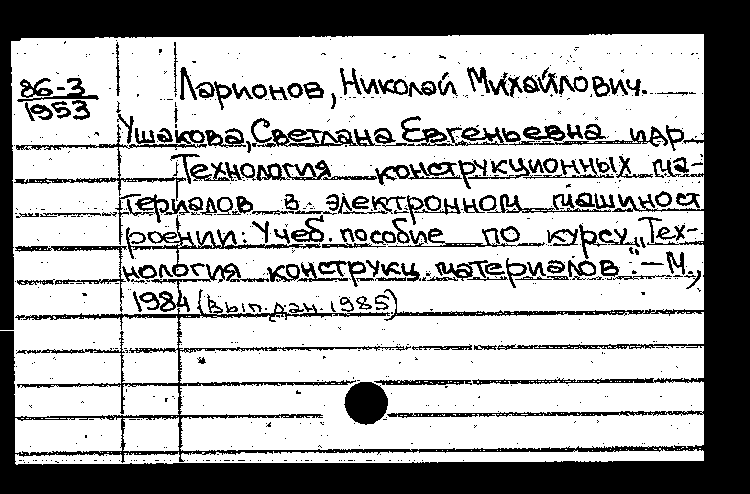 86-3
1953
Ларионов, Николай Михайлович.
Ушакова, Светлана Евгеньевна и др
Технология конструкционных ма-
териалов в электронном машиност
роении: Учеб. пособие по курсу „Тех-
нология конструкц. материалов". – М.,
1984 (вып. дан. 1985)